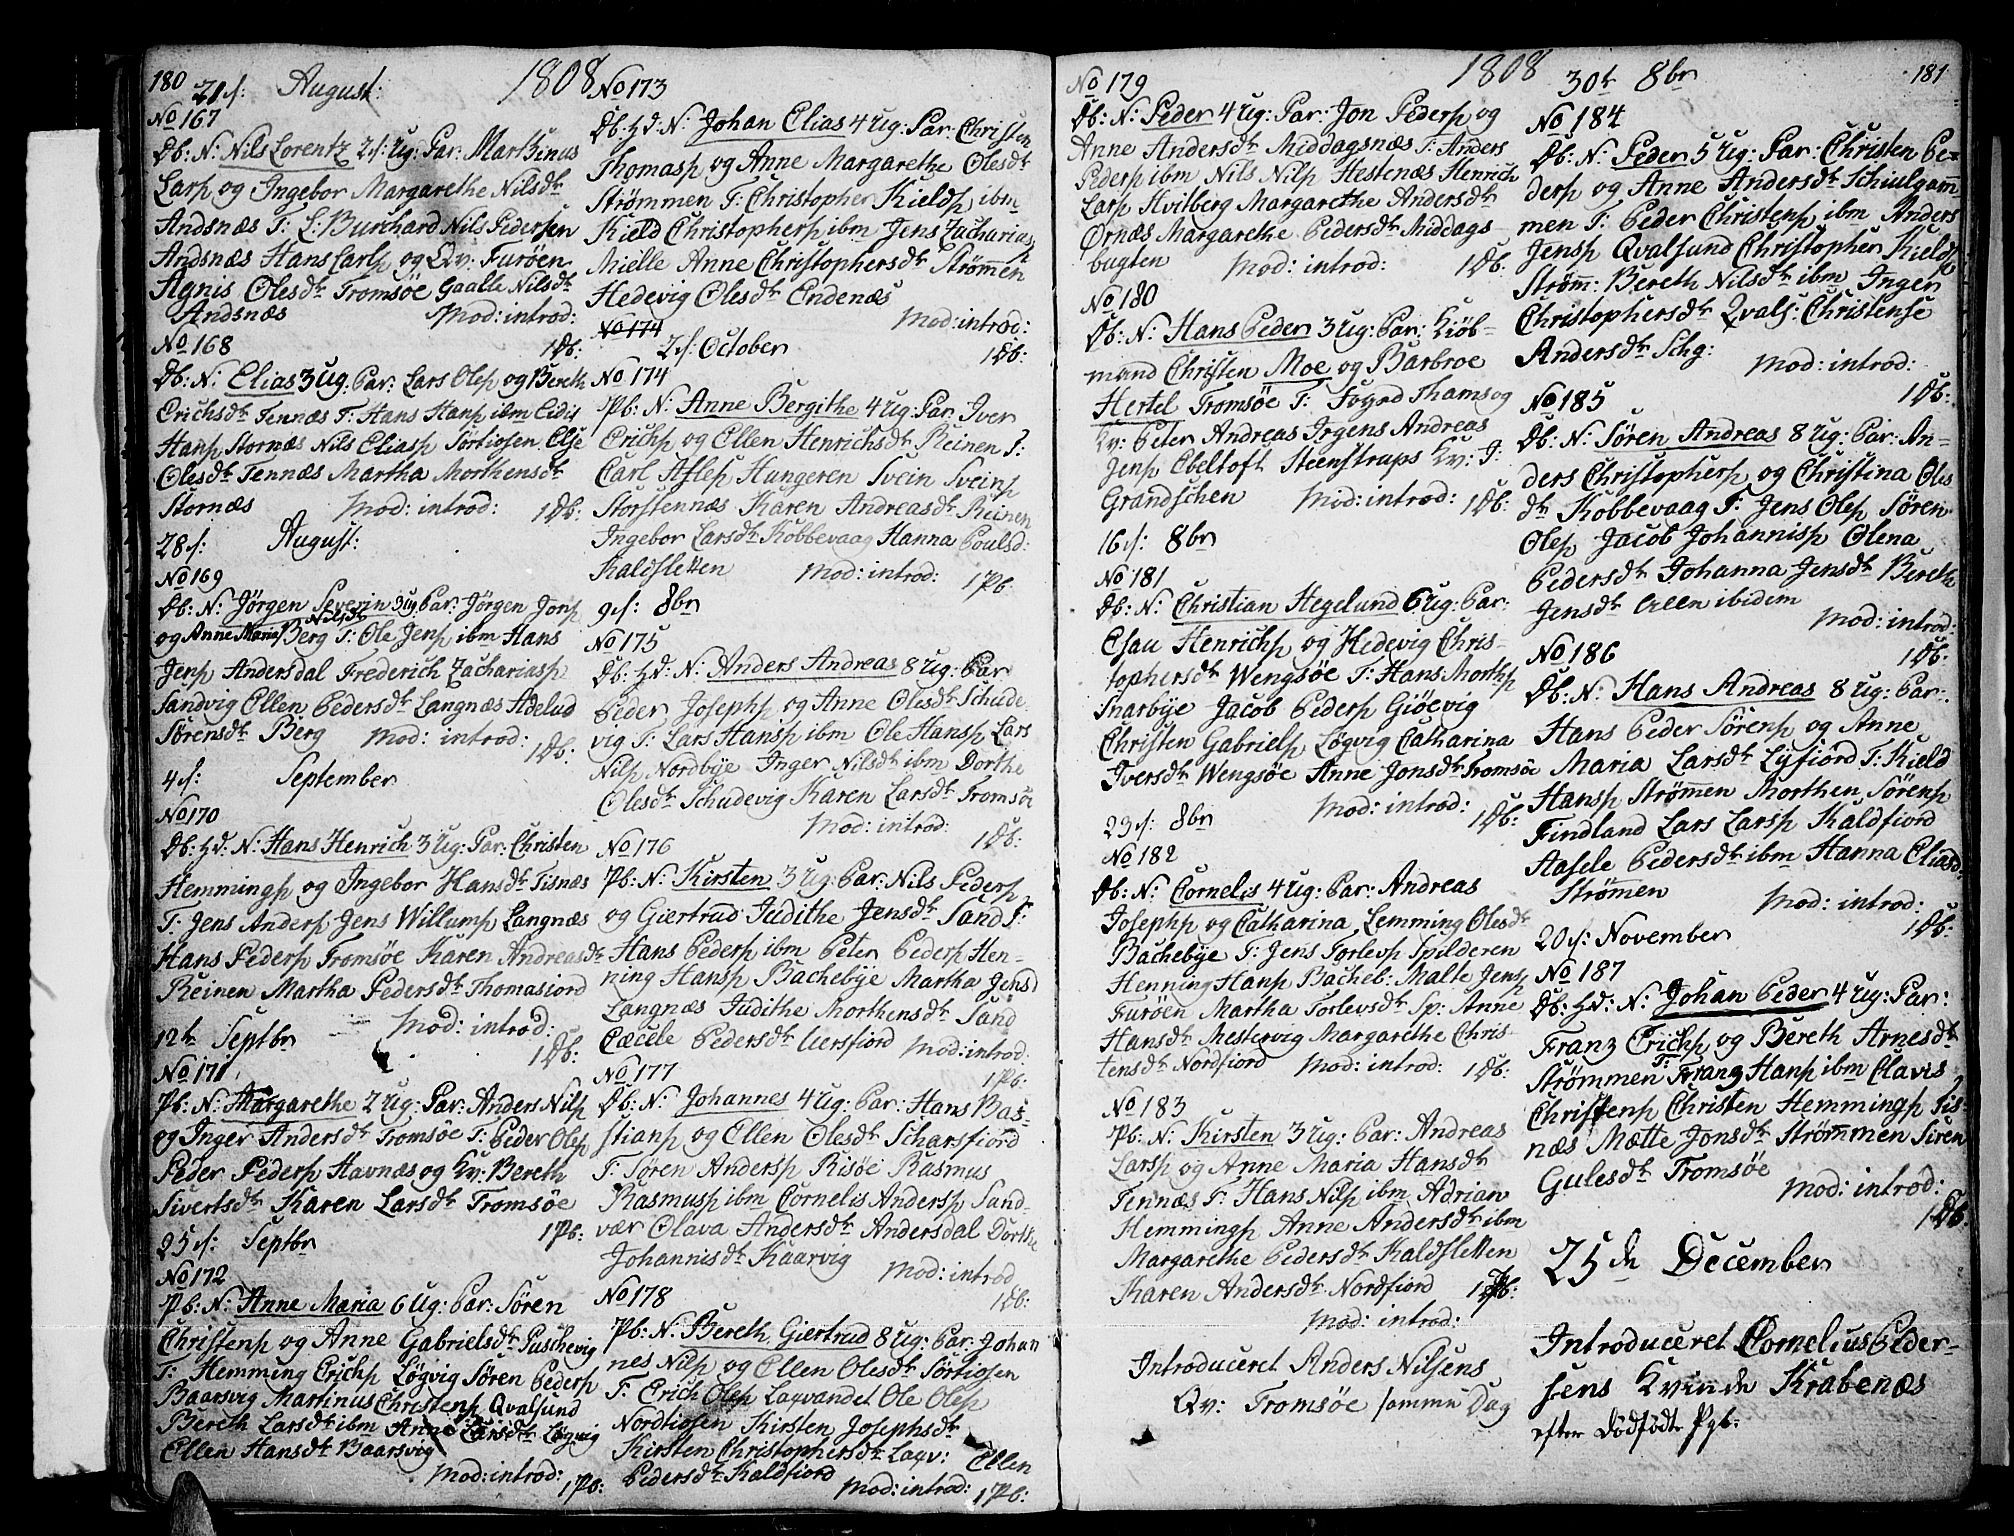 180
21 s: August: 1808
No 167
Db: N: Nils Lorentz 2 s: Ug: Par: Martinus
Larsp og Ingebor Margarethe Nilsdtr
Andsnæs T: L: Burchard Nils Pedersen
Andsnæs Hans Carlsp og Qv: Furöen
Agnis Olesdtr Tromsöe Gaalle Nilsdtr
Andsnæs Mod: introd:
No 168 1 Db:
Db: N: Elias 3 Ug: Par: Lars Olep og Bereth
Erichsdtr Tennæs T: Hans Hansp ibm Eidis
Hansp Stornæs Nils Eliasp Sörtiosen Else
Olesdtr Tennæs Martha Morthensdtr
Stornæs Mod: introd: 1 Db:
28 s: August:
No 169
Db: N: Jörgen Severin 3 Ug: Par: Jörgen Jonsp
og Anne Maria Nilsdtr Berg T: Ole Jensp ibm Hans
Jensp Andersdal Frederich Zachariasp
Sandvig Ellen Pedersdtr Langnæs Adelud
Sörensdtr Berg Mod: introd: 1 Db:
4 s: September
No 170
Db: Hd: N: Hans Henrich 3 Ug: Par: Christen
Hemmingsp og Ingebor Hansdtr Tisnæs
T: Jens Andersp Jens Willumsp Langnæs
Hans Pedersp Tromsöe Karen Andreasdtr
Reinen Martha Pedersdtr Thomasiord
12te Septbr Mod: introd: 1 Db:
No 171
Pb: N: Margarethe 2 Ug: Par: Anders Nilsp
og Inger Andersdtr Tromsöe T: Peder Olep
Peder Pedersp Havnæs og Kv: Bereth
Sivertsdtr Karen Larsdtr Tromsöe
25 s: Septbr 1 Pb:
No 172
Pb: N: Anne Maria 6 Ug: Par: Sören
Christensp og Anne Gabrielsdtr Puschevig
T: Hemming Erichsp Lögvig Sören Pedersp
Baarsvig Martinus Christensp Qvalsund
Bereth Larsdtr ibm Anne Larsdtr Lögvig
Ellen Hansdtr Baarsvig
Mod: introd: 1 Pb:
No 173
Db: Hd: N: Johan Elias 4 Ug: Par: Christen
Thomasp og Anne Margarethe Olesdtr
Strömmen T: Christopher Kieldsp ibm
Kield Christophersp ibm Jens Zachariasp
Mielle Anne Christophersdtr Strömmen
Hedevig Olesdtr Endenæs
No 174 Mod: introd:
2 s: October 1 Db:
No 174
Pb: N: Anne Bergithe 4 Ug: Par: Iver
Erichsp og Ellen Henrichsdtr Reinen T:
Carl Aslep Hungeren Svein Sveinsp
Storstennæs Karen Andreasdtr Reinen
Ingebor Larsdtr Kobbevaag Hanna Poulsd:
Kaldsletten Mod: introd: 1 Pb:
9 s: 8br
No 175
Db: Hd: N: Anders Andreas 8 Ug: Par
Peder Josephsp og Anne Olesdtr Schude-
vig T: Lars Hansp ibm Ole Hansp Lars
Nilsp Nordbye Inger Nilsdtr ibm Dorthe
Olesdtr Schudevig Karen Larsdtr Tromsöe
Mod: introd:
No 176 1 Db:
Pb: N: Kirsten 3 Ug: Par: Nils Pedersp
og Giertrud Judithe Jensdtr Sand T:
Hans Pedersp ibm Peter Pedersp Hen-
ning Hansp Bachebye Martha Jensd
Langnæs Judithe Morthensdtr Sand
Cæcele Pedersdtr Uersfiord Mod: introd:
No 177 1 Pb:
Db: N: Johannes 4 Ug: Par: Hans Bas-
tiansp og Ellen Olesdtr Scharsfiord
T: Sören Andersp Risöe Rasmus
Rasmusp ibm Cornelis Andersp Sand-
vær Olava Andersdtr Andersdal Dorthe
Johannisdtr Kaarvig Mod: introd
No 178 1 Db:
Pb: N: Bereth Giertrud 8 Ug: Par: Johan
nes Nilsp og Ellen Olesdtr Sörtiosen
T: Erich Olep Lagvandet Ole Olep
Nordtiosen Kirsten Josephsdtr
Kirsten Christophersdtr Lagv: Ellen
Pedersdtr Kaldfiord
Mod: introd: 1 Pb:
1808 181
No 179
Db: N: Peder 4 Ug: Par: Jon Pedersp og
Anne Andersdtr Middagsnæs T: Anders
Pedersp ibm Nils Nilsp Hestenæs Henrich
Larsp Hvitberg Margarethe Andersdtr
Örnæs Margarethe Pedersdtr Middags-
bugten Mod: introd: 1 Db:
No 180
Db: N: Hans Peder 3 Ug: Par: Kiöb-
mand Christen Moe og Barbroe
Hertel Tromsöe T: Foged Thams og
Kv: Peter Andreas Irgens Andreas
Jensp Ebeltoft Steenstrups Kv: J:
Grandschen Mod: introd: 1 Db:
16 s: 8br
No 181
Db: N: Christian Hegelund 6 Ug: Par:
Esau Henrichsp og Hedevig Chris-
tophersdtr Wengsöe T: Hans Morthsp
Snarbye Jacob Pedersp Giöevig
Christen Gabrielsp Lögvig Catharina
Iversdtr Wengsöe Anne Jonsdtr Tromsöe
Mod: introd: 1 Db:
23 s: 8br
No 182
Db: N: Cornelis 4 Ug: Par: Andreas
Josephsp og Catharina Lemming Olesdtr
Bachebye T: Jens Torlevsp Spilderen
Henning Hansp Bacheb: Malte Jensp
Furöen Martha Torlevsdtr Sp: Anne
Hansdtr Mestervig Margarethe Chris-
tensdtr Nordfiord Mod: introd: 1 Db:
No 183
Pb: N: Kirsten 3 Ug: Par: Andreas
Larsp og Anne Maria Hansdtr
Tennæs T: Hans Nilsp ibm Adrian
Hemmingsp Anne Andersdtr ibm
Margarethe Pedersdtr Kaldsletten
Karen Andersdtr Nordfiord 1 Pb:
Mod: introd:
Introduceret Anders Nilsens
Qv: Tromsöe samme Dag
30te 8br
No 184
Db: N: Peder 5 Ug: Par: Christen Pe-
dersp og Anne Andersdtr Schiulgam-
men T: Peder Christensp ibm Anders
Jensp Qvalsund Christopher Kieldsp
Strömm: Bereth Nilsdtr ibm Inger
Christophersdtr Qvals: Christense
Andersdtr Schg: Mod: introd:
No 185 1 Db:
Db: N: Sören Andreas 8 Ug: Par: An-
ders Christophersp og Christina Oles
dtr Kobbevaag T: Jens Olep Sören
Olep Jacob Johannisp Olena
Pedersdtr Johanna Jensdtr Bereth
Jensdtr Allen ibidem
Mod: introd:
No 186 1 Db:
Db: N: Hans Andreas 8 Ug: Par:
Hans Peder Sörensp og Anne
Maria Larsdtr Lyfiord T: Kield
Hansp Strömmen Morthen Sörensp
Findland Lars Larsp Kaldfiord
Aasele Pedersdtr ibm Hanna Eliasd:
Strömen Mod: introd:
20 s: November 1 Db:
No 187
Db: Hd: N: Johan Peder 4 Ug: Par:
Franz Erichsp og Bereth Arnesdtr
Strömmen T: Franz Hansp ibm Clavis
Christensp Christen Hemmingsp Tis-
næs Mætte Jonsdtr Strömmen Siren
Gulesdtr Tromsöe
Mod: introd:
1 Db:
25de December
Introduceret Cornelius Peder-
sens Kvinde Krabenæs
efter dödfödte Pgb: